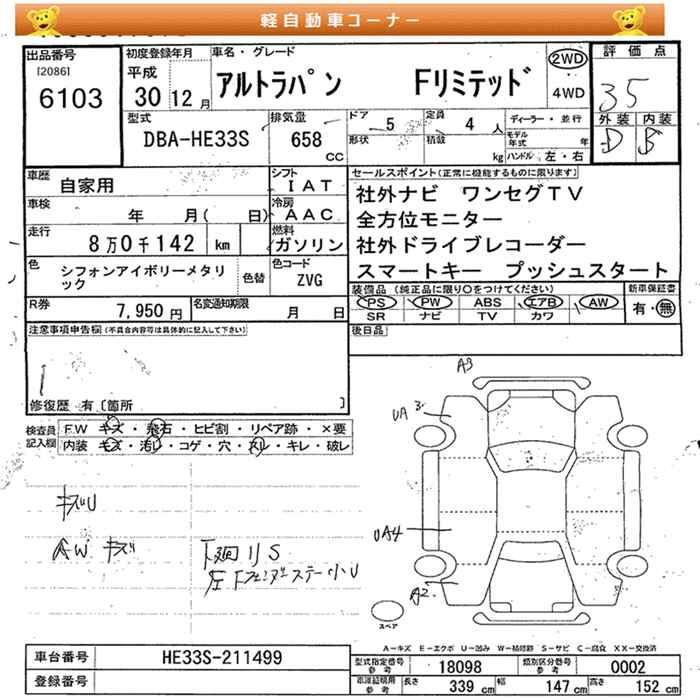 軽自動車コーナー
出品番号
[2086]
6103
初度登録年月
平成
30 年 12 月
車名・グレード
アルトラパン Fリミテッド
2WD
4WD
評価点
35
外装 内装
D B
型式
DBA-HE33S
排気量
658
CC
ドア
5
形状
定員
4 人
積載
kg
ディーラー・並行
モデル年式 年
ハンドル 左・右
車歴
自家用
シフト
IAT
車検
年 月( 日)
冷房
AAC
走行
8万0千142 km
燃料
ガソリン
色
シフォンアイボリーメタリック
色替
色コード
ZVG
R券
7,950 円
名変通知期限
月 日
セールスポイント(正常に機能するものに限ります)
社外ナビ ワンセグTV
全方位モニター
社外ドライブレコーダー
スマートキー プッシュスタート
装備品(純正品に限り〇をつけてください)
PS PW ABS エアB AW
SR ナビ TV カワ
新車保証書
有・無
後日品
注意事項申告欄(不具合内容等は具体的に記入して下さい)
修復歴 有〔箇所 〕
検査員記入欄
FW キズ・飛石・ヒビ割・リペア跡・×要
内装 キズ・汚レ・コゲ・穴・スレ・キレ・破レ
キズU
AW キズ
下廻りS
左Fフェンダーステー小U
A3
UA3
UA4
A2
スペア
A-キズ E-エクボ U-凹み W-補修跡 S-サビ C-腐食 XX-交換済
車台番号
HE33S-211499
登録番号
型式指定番号
参考
18098
類別区分番号
参考
0002
車庫証明用
参考
長さ 339 cm
幅 147 cm
高さ 152 cm